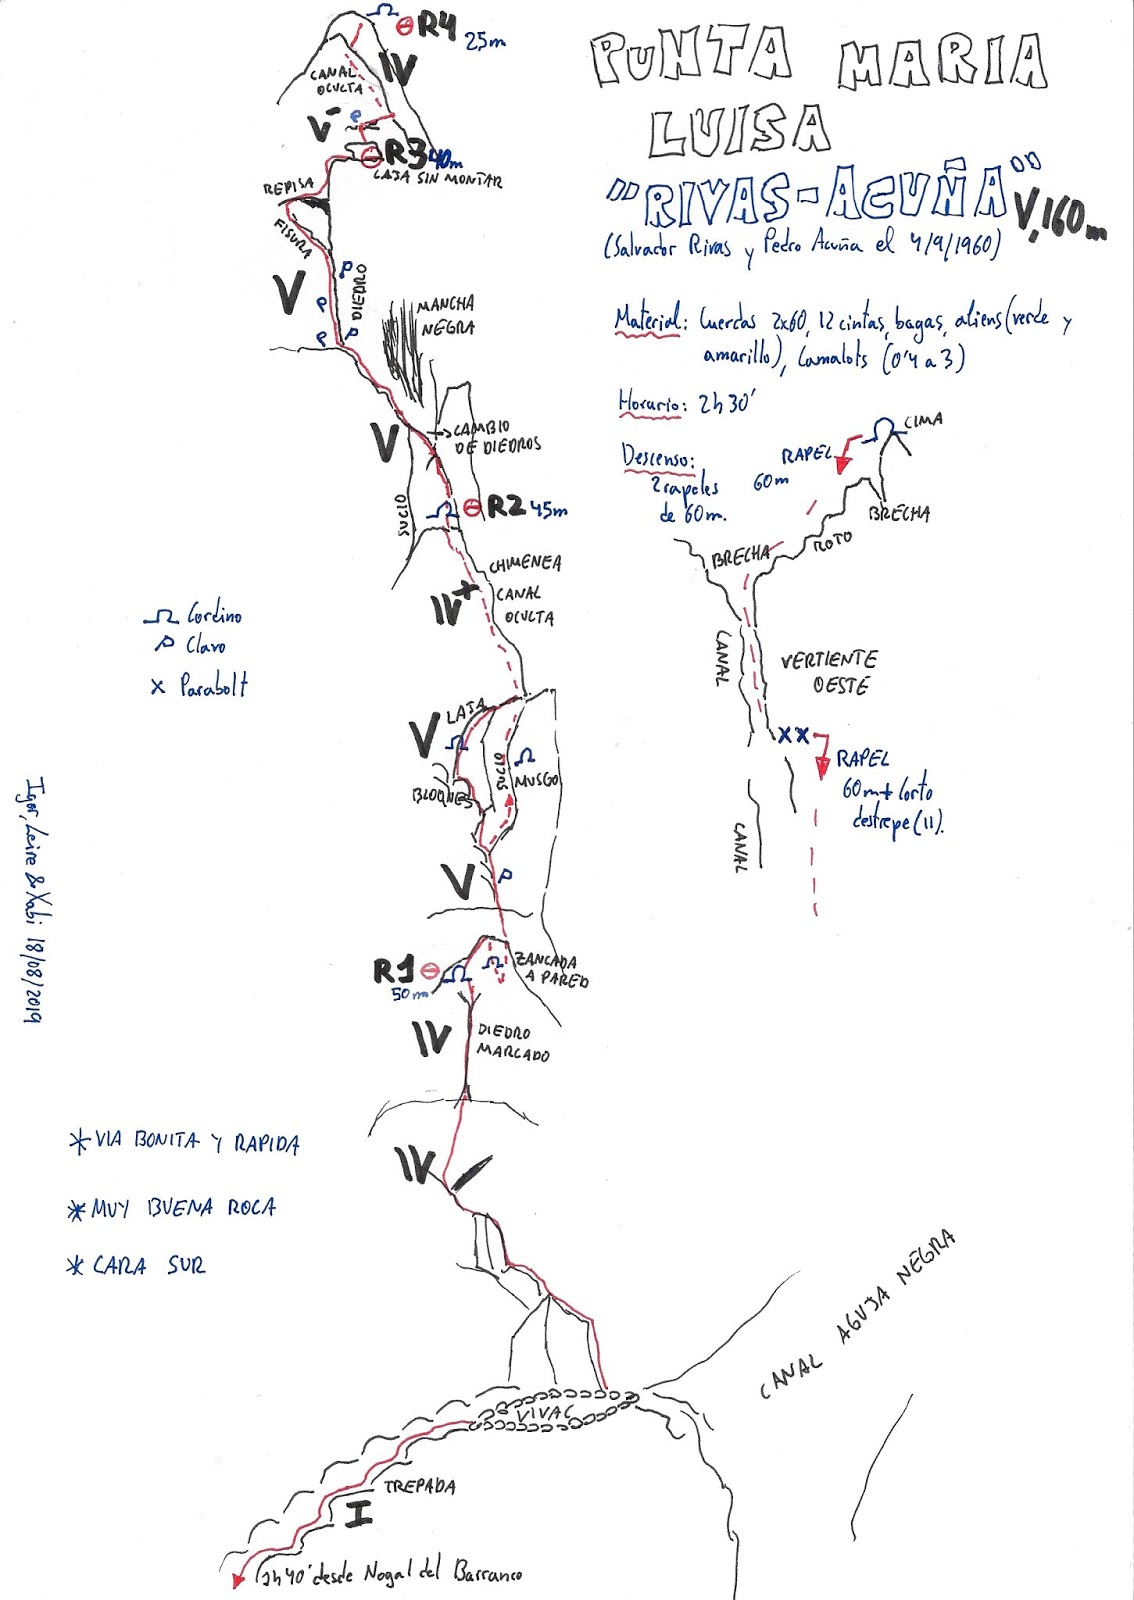 PUNTA MARIA
LUISA
"RIVAS-ACUÑA" V, 160m
(Salvador Rivas y Pedro Acuña el 4/9/1960)
Material: Cuerdas 2x60, 12 cintas, bagas, aliens (verde y
amarillo), Camalots (0'4 a 3)
Horario: 2h 30'
Descenso:
2 rapeles
de 60m.
CIMA
RAPEL
60m
BRECHA
ROTO
BRECHA
CANAL
VERTIENTE
OESTE
XX
RAPEL
60m + Corto
destrepe (II).
CANAL
R4 25m
IV
CANAL
OCULTA
V-
R3 40m
LAJA SIN MONTAR
REPISA
FISURA
V
DIEDRO
MANCHA
NEGRA
V
CAMBIO
DE DIEDROS
SUCIO
R2 45m
CHIMENEA
IV+
CANAL
OCULTA
Cordino
Clavo
X Parabolt
V
LAJA
SUCIO
MUSGO
BLOQUES
V
R1
50m
ZANCADA
A PARED
IV
DIEDRO
MARCADO
IV
Igor, Leire & Xabi 18/08/2019
* VIA BONITA Y RAPIDA
* MUY BUENA ROCA
* CARA SUR
CANAL AGUJA NEGRA
VIVAC
TREPADA
I
2h40' desde Nogal del Barranco